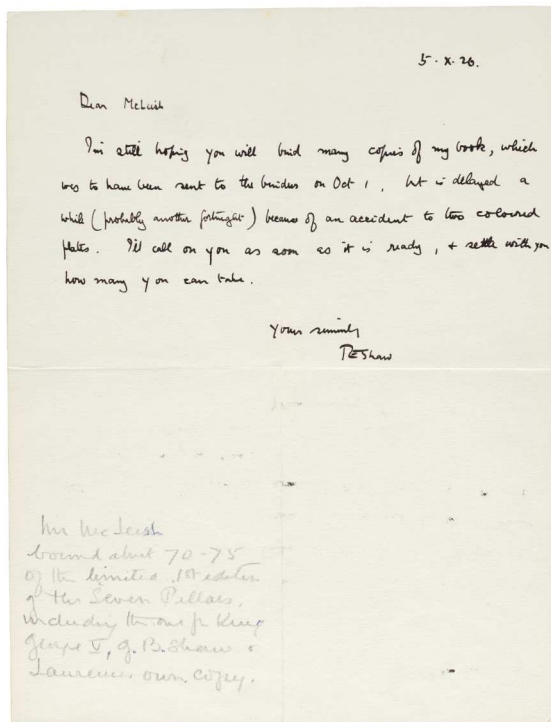 5. X. 26.
Dear McLeish
I'm still hoping you will bind many copies of my book, which
was to have been sent to the binders on Oct 1, but is delayed a
while (probably another fortnight) because of an accident to two coloured
plates. I'll call on you as soon as it is ready, + settle with you
how many you can take.
Yours sincerely
TEShaw
Mr McLeish
bound about 70-75
of the limited 1st edition
of the Seven Pillars,
including the ones for King
George V, G. B. Shaw &
Lawrences own copy.